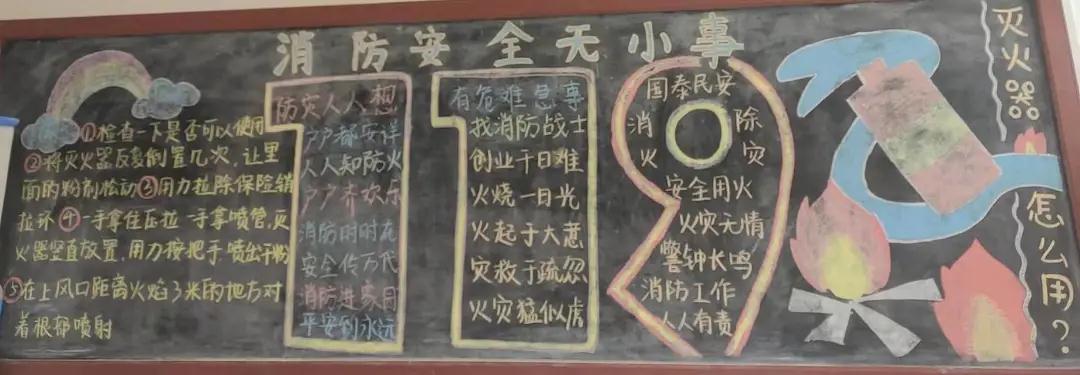 消防安全无小事
①检查一下是否可以使用
②将灭火器反复倒置几次,让里
面的粉剂松动③用力拉除保险销
拉环④一手拿住压拉一手拿喷管,灭
火器竖直放置,用力按把手喷出干粉
⑤在上风口距离火焰3米的地方对
着根部喷射
防灾人人想
户户都安详
人人知防火
户户齐欢乐
消防时时在
安全传万代
消防进家门
平安到永远
有危难急事
找消防战士
创业千日难
火烧一日光
火起于大意
灾救于疏忽
火灾猛似虎
国泰民安
消除
火灾
安全用火
火灾无情
警钟长鸣
消防工作
人人有责
灭火器
怎么用?